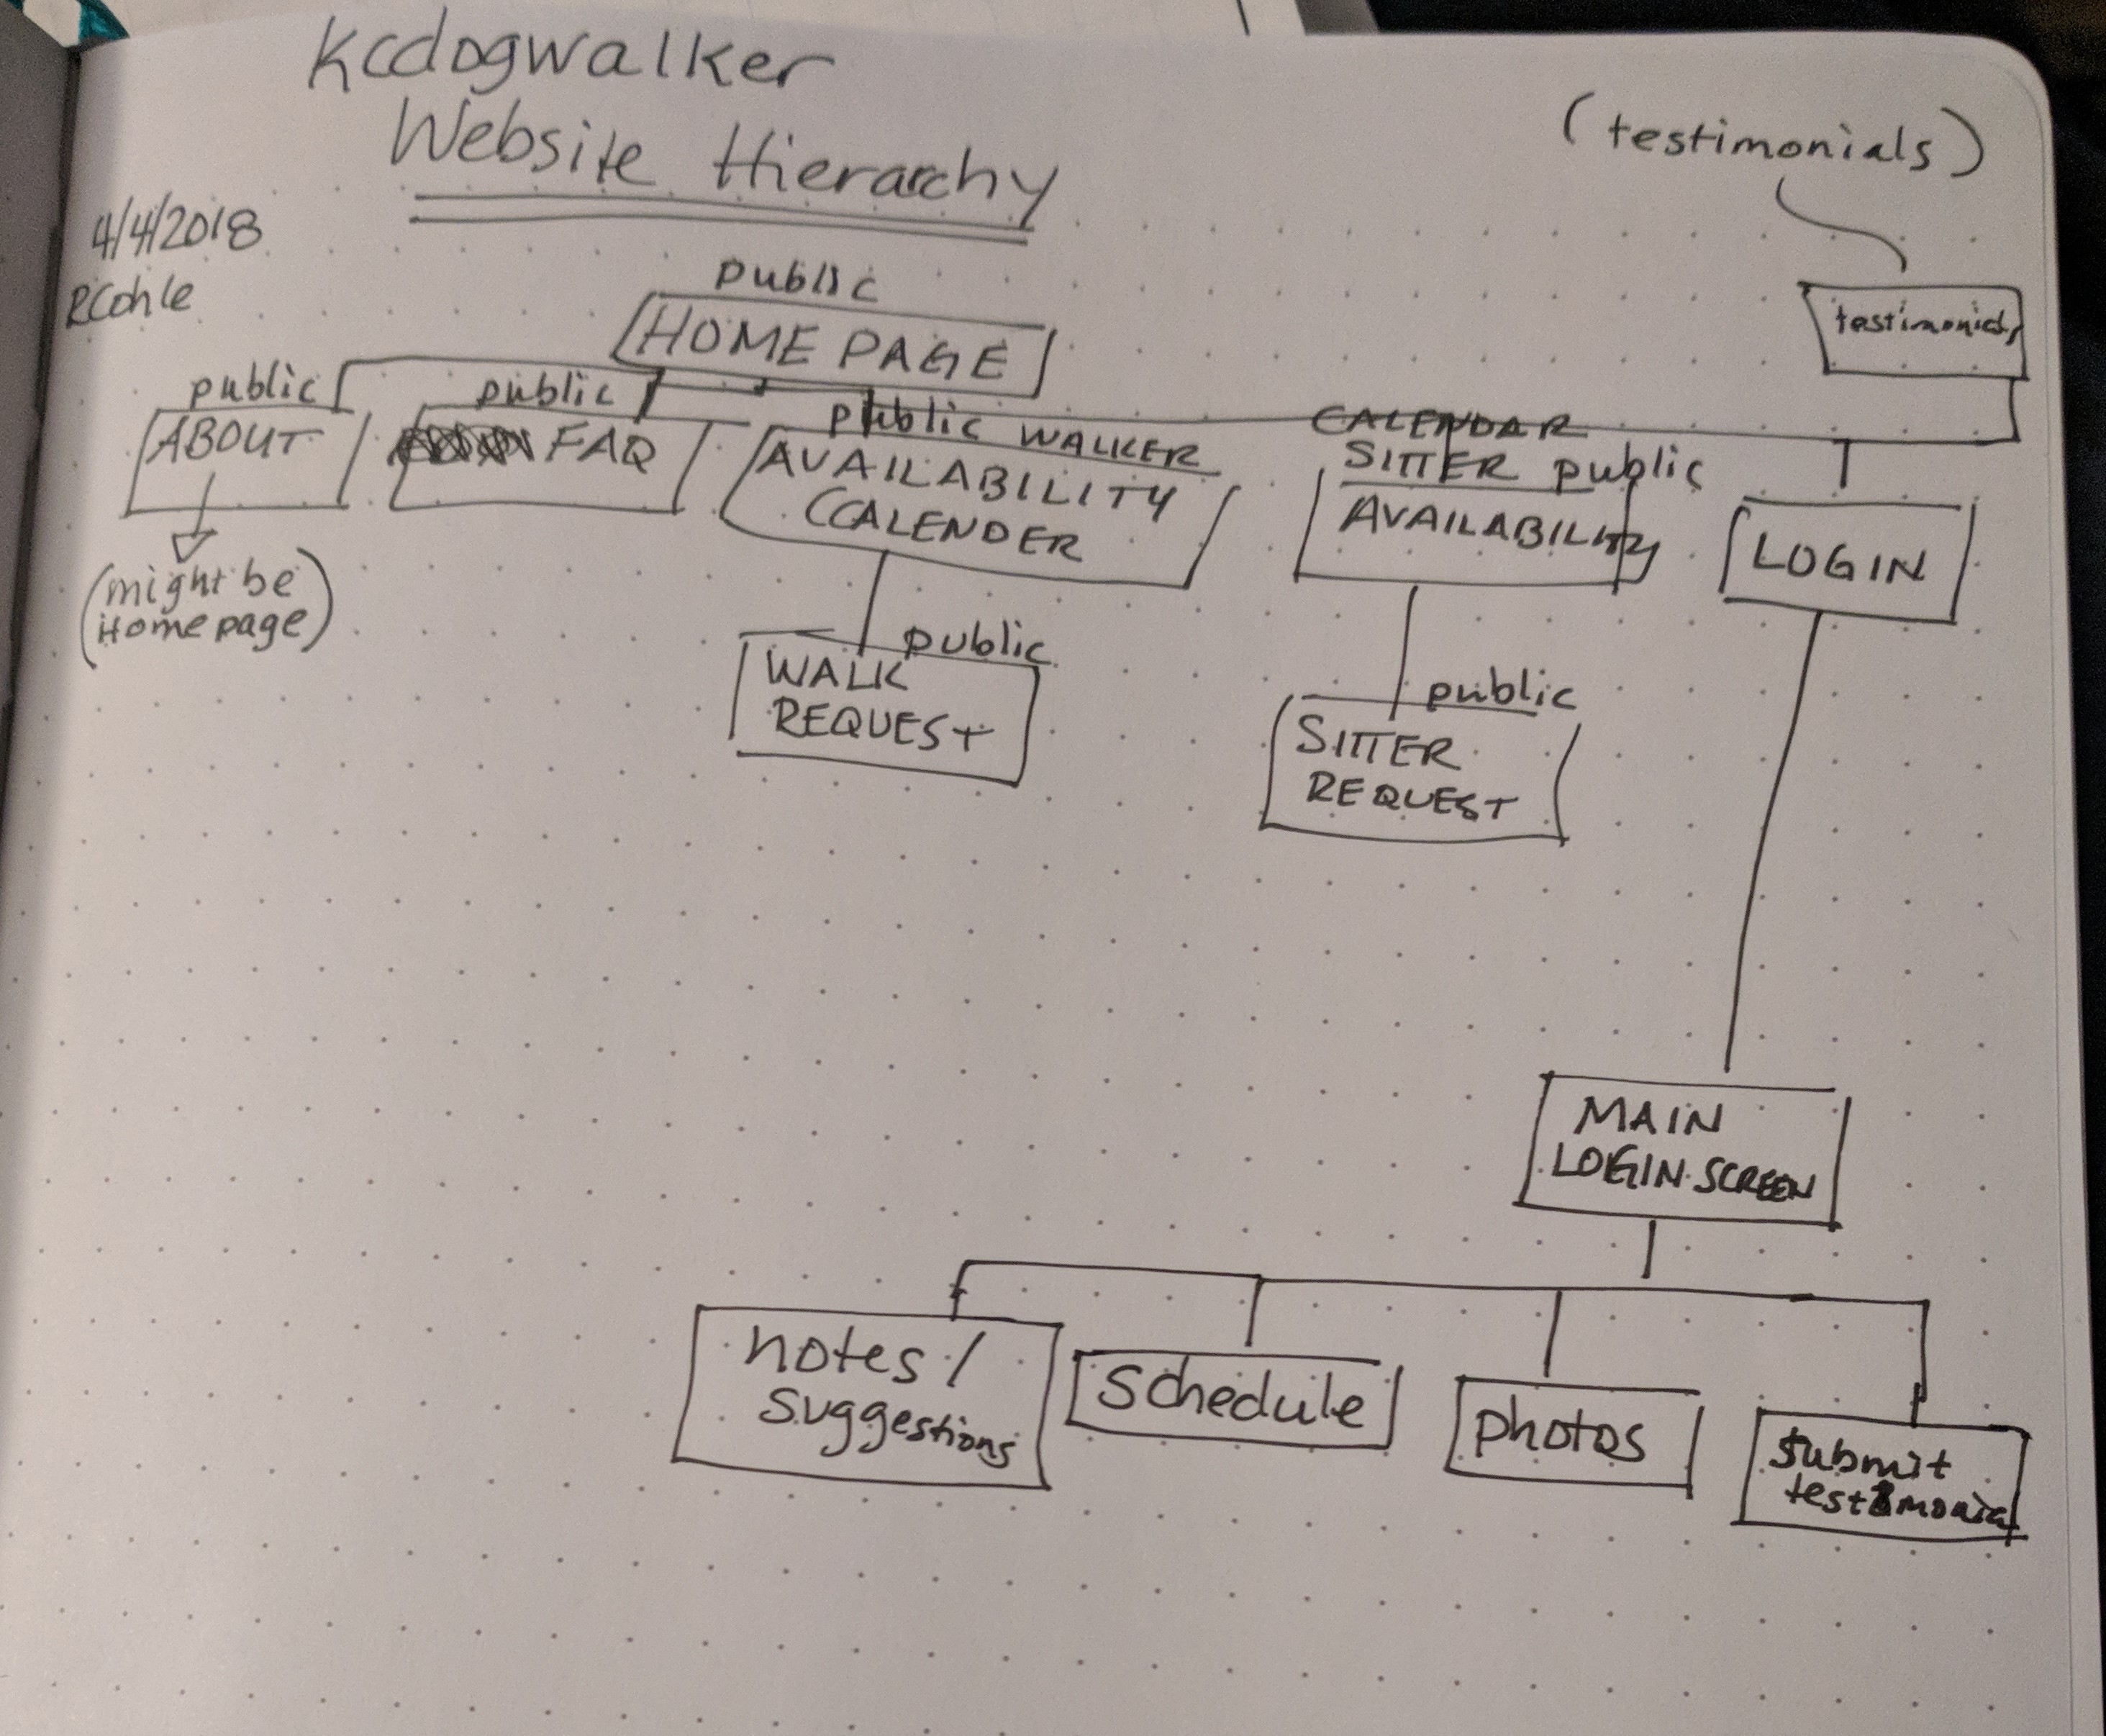 Kcdogwalker
Website Hierarchy
(testimonials)
4/4/2018
RCohle
public
HOME PAGE
testimonials
public
ABOUT
(might be
Homepage)
public
FAQ
public WALKER
AVAILABILITY
(CALENDER
CALENDAR
SITTER public
AVAILABILITY
LOGIN
public
WALK
REQUEST
public
SITTER
REQUEST
MAIN
LOGIN SCREEN
notes/
suggestions
schedule
photos
submit
testimonial